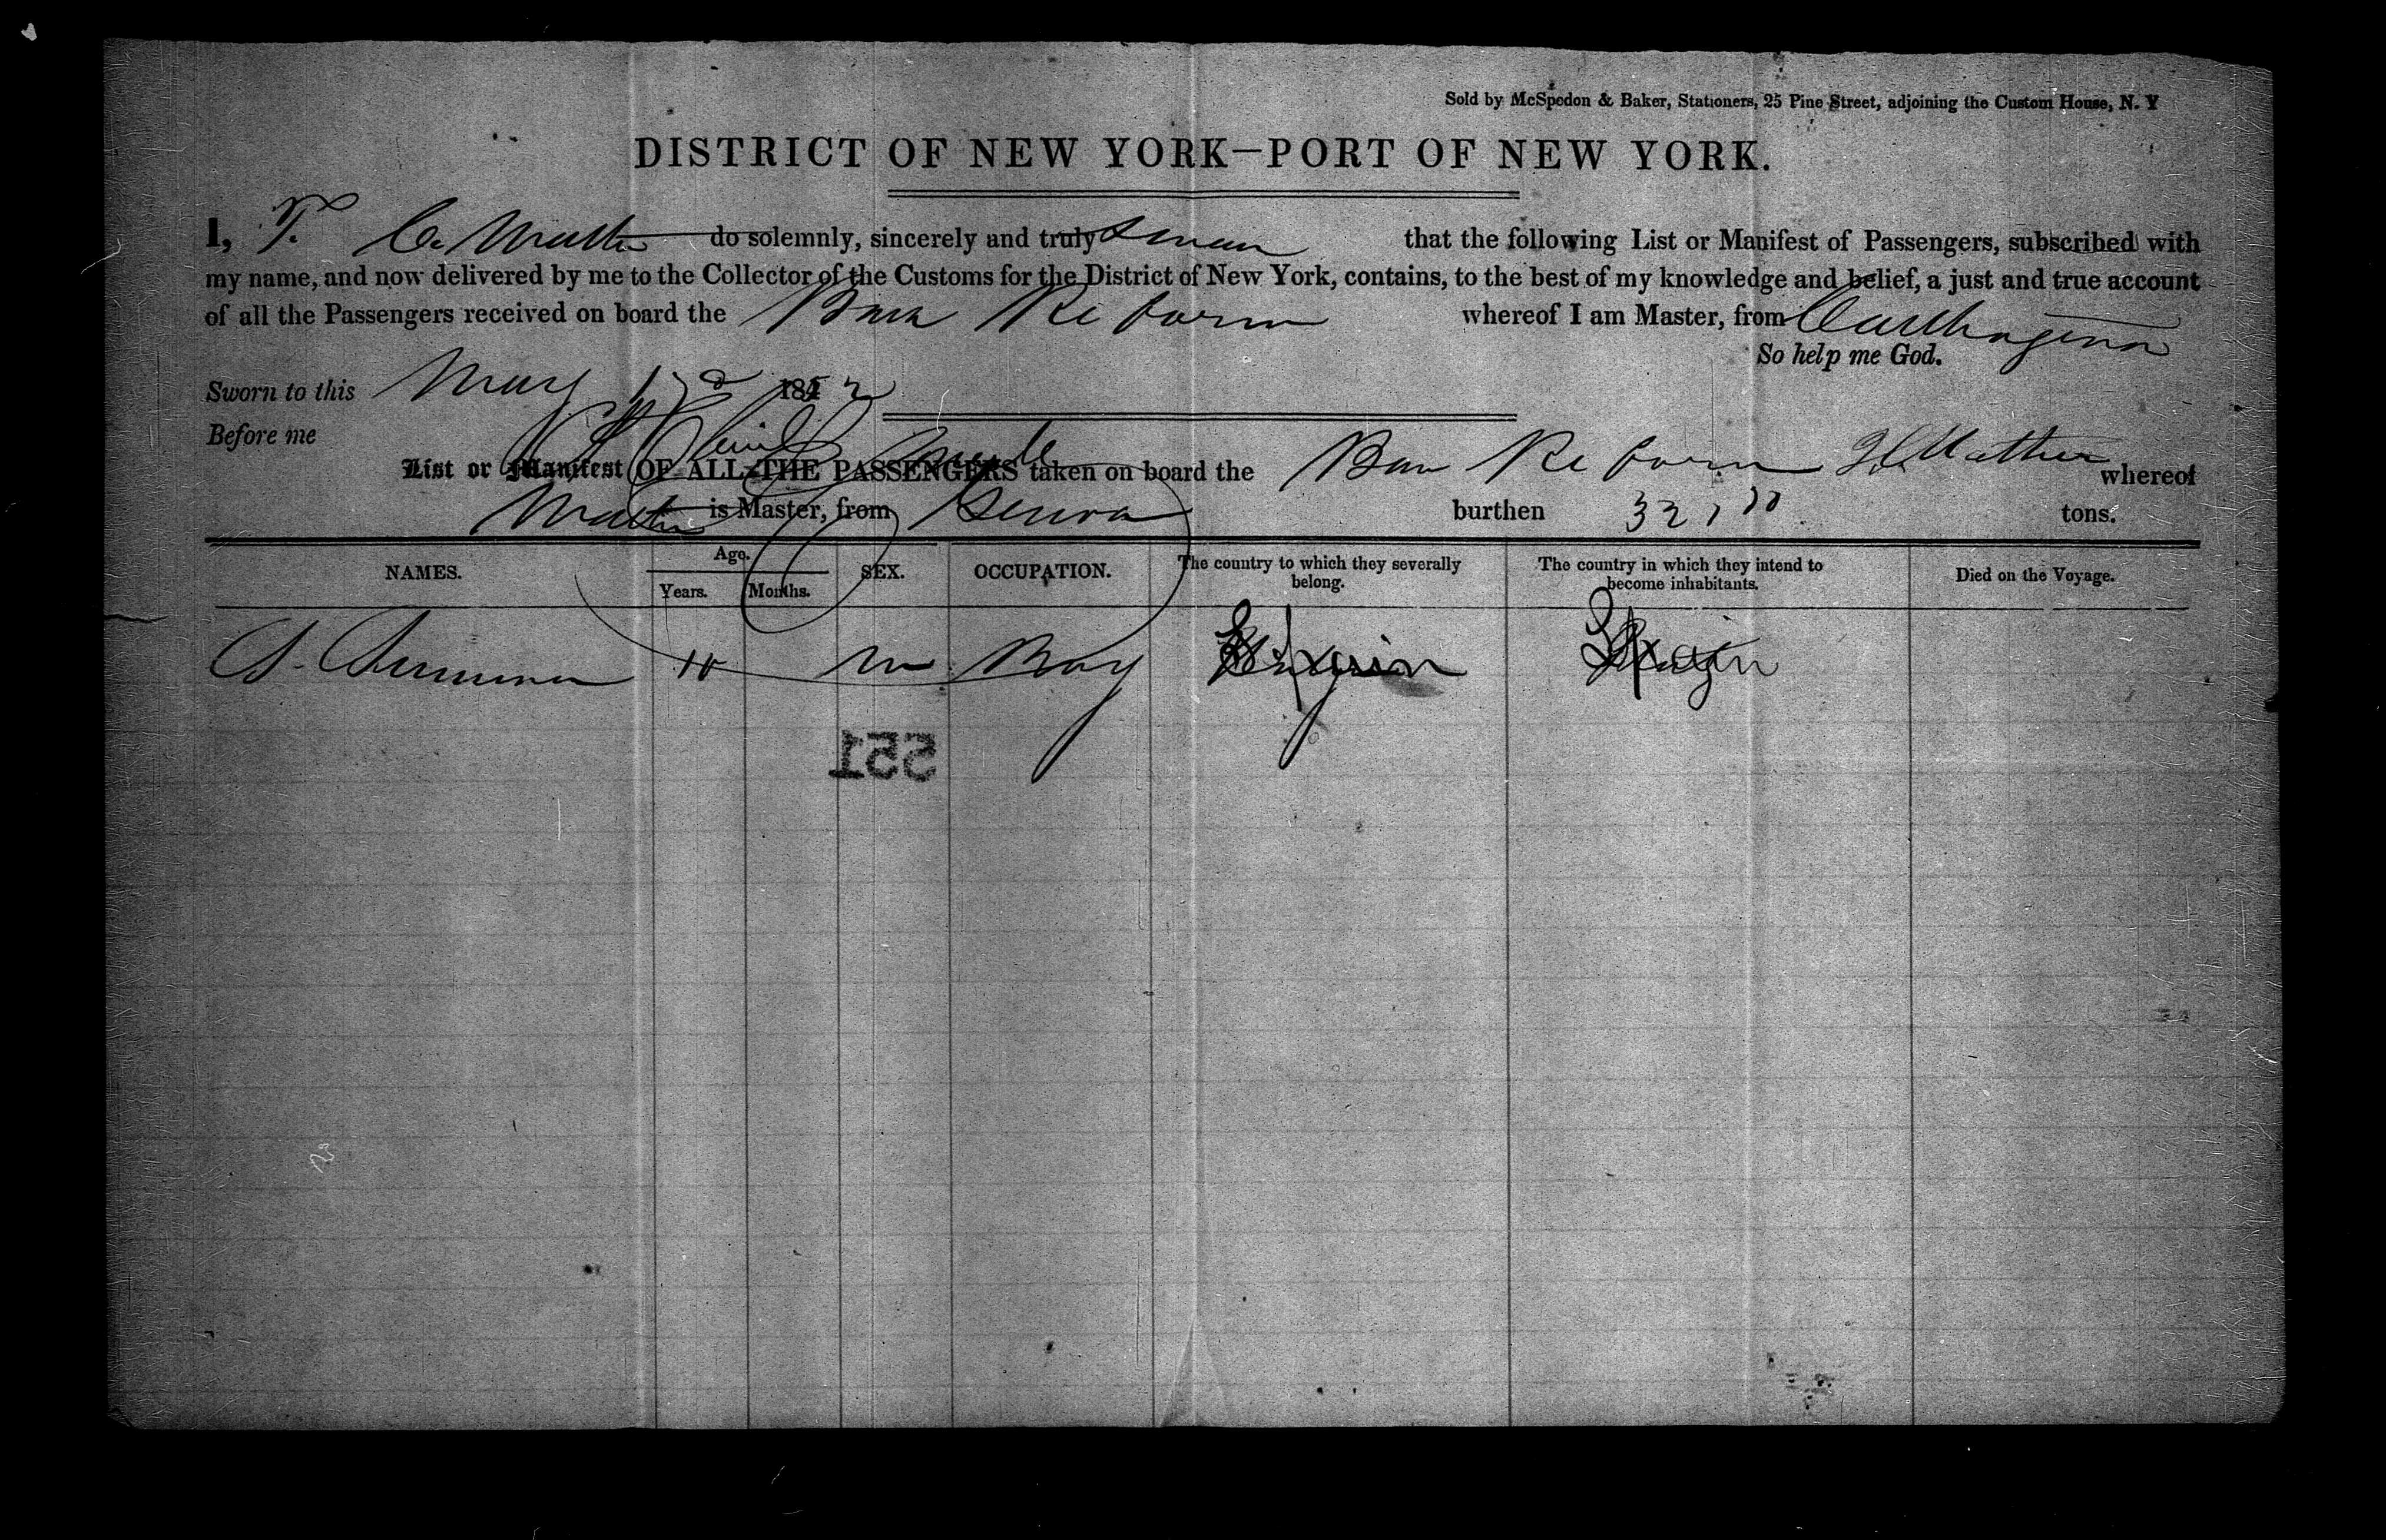 Sold by McSpedon & Baker, Stationers, 25 Pine Street, adjoining the Custom House, N. Y
DISTRICT OF NEW YORK—PORT OF NEW YORK.
I, T. C. Mather do solemnly, sincerely and truly swear that the following List or Manifest of Passengers, subscribed with
my name, and now delivered by me to the Collector of the Customs for the District of New York, contains, to the best of my knowledge and belief, a just and true account
of all the Passengers received on board the Bark Reform whereof I am Master, from Carthagena
So help me God.
Sworn to this May 1852
Before me
List or Manifest OF ALL THE PASSENGERS taken on board the Bark Reform Mather whereof
Master is Master, from burthen tons.
NAMES. Age. SEX. OCCUPATION. The country to which they severally belong. The country in which they intend to become inhabitants. Died on the Voyage.
Years. Months.
10 m Boy Spain Spain
551